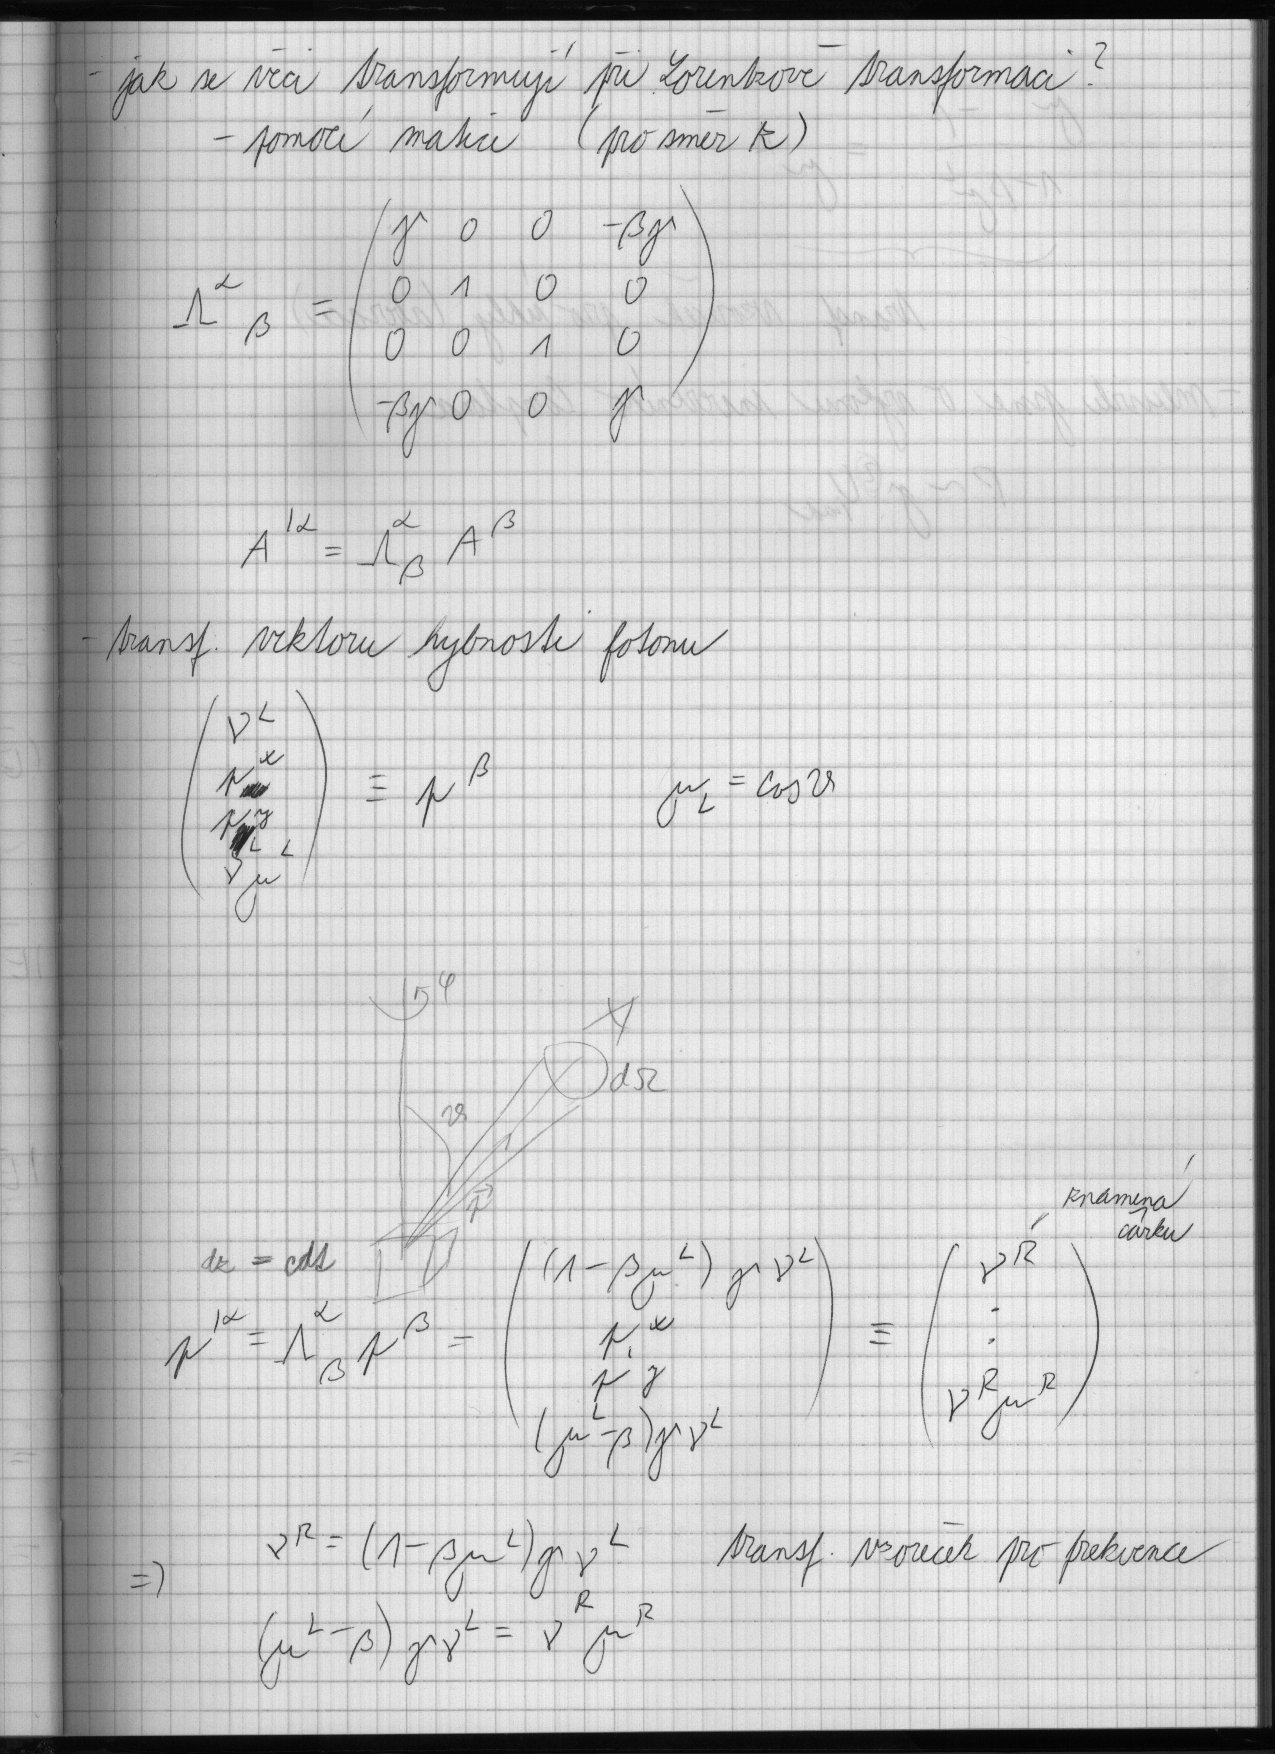 - jak se věci transformují při Lorentzově transformaci?
- pomocí matice (pro směr z)
Λ^α_β = ( γ 0 0 -βγ
0 1 0 0
0 0 1 0
-βγ 0 0 γ )
A'^α = Λ^α_β A^β
- transf. vektoru hybnosti fotonu
( ν^L
p^x
p^y
ν^L μ^L ) ≡ p^β μ_L = cos ϑ
φ
dΩ
ϑ
p⃗
znamená
čárku '
dz = cdt
p'^α = Λ^α_β p^β = ( (1-βμ^L) γ ν^L
p^x
p^y
(μ^L-β) γ ν^L ) ≡ ( ν^R
.
.
ν^R μ^R )
⇒ ν^R = (1-βμ^L) γ ν^L transf. vzoreček pro frekvence
(μ^L-β) γ ν^L = ν^R μ^R